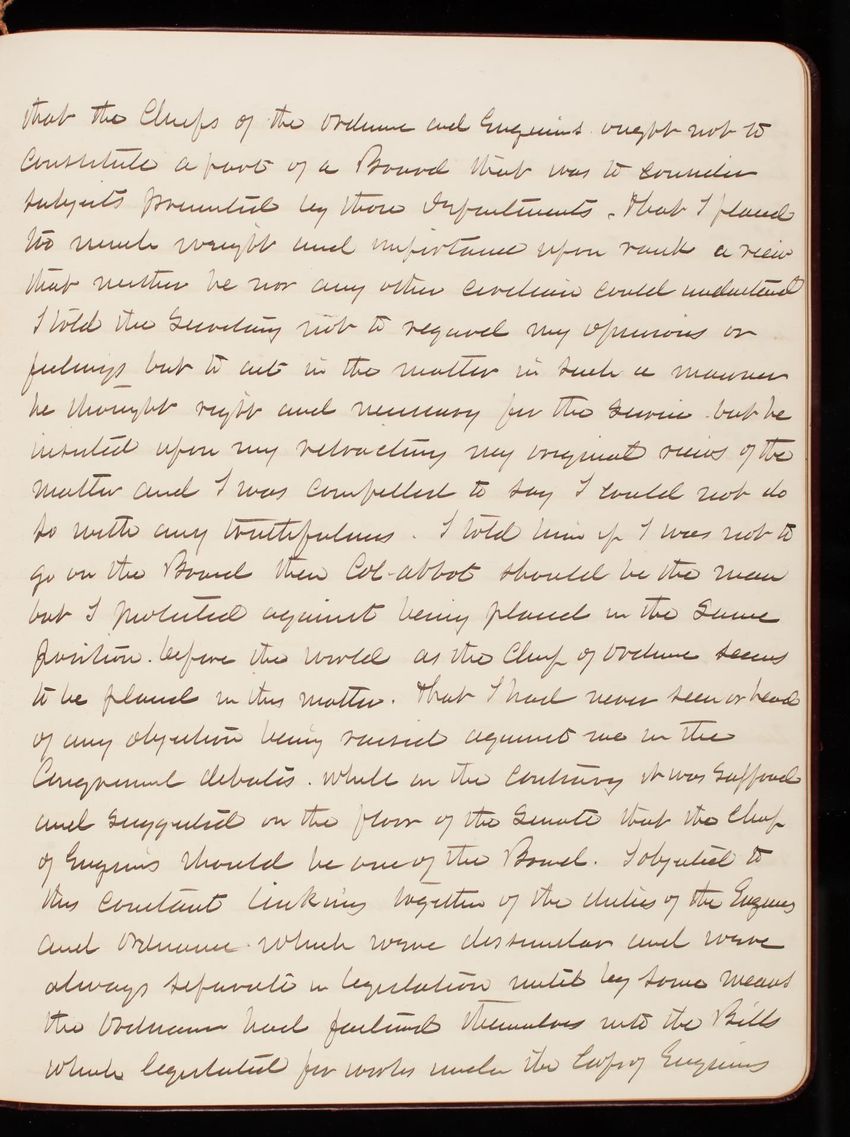 that the Chiefs of the Ordnance and Engineers ought not to
constitute a part of a Board that was to consider
subjects presented by those Departments. That I placed
too much weight and importance upon rank a view
that neither he nor any other civilian could understand
I told the Secretary not to regard my opinions or
feelings but to act in the matter in such a manner
he thought right and necessary for the service but he
insisted upon my retracting my original views of the
matter and I was compelled to say I could not do
so with any truthfulness. I told him if I was not to
go on the Board then Col. Abbot should be the man
but I protested against being placed in the same
position before the world as the Chief of Ordnance seems
to be placed in this matter. That I had never seen or heard
of any objection being raised against me in the
Congressional debates. While on the contrary it was
and suggested on the floor of the Senate that the Chief
of Engineers should be one of the Board. I objected to
this constant linking together of the duties of the Engineers
and Ordnance which were dissimilar and were
always separate in legislation until by some means
the Ordnance had themselves into the Bills
which legislated for works under the Corps of Engineers